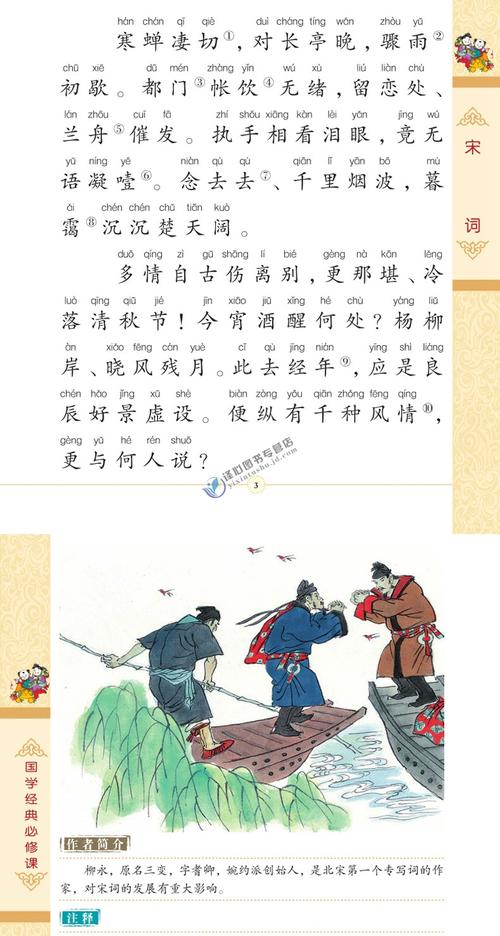 hán chán qī qiè duì cháng tíng wǎn zhòu yǔ
寒蝉凄切①，对长亭晚，骤雨②
chū xiē dū mén zhàng yǐn wú xù liú liàn chù
初歇。都门③帐饮④无绪，留恋处、
lán zhōu cuī fā zhí shǒu xiāng kàn lèi yǎn jìng wú
兰舟⑤催发。执手相看泪眼，竟无
yǔ níng yē niàn qù qù qiān lǐ yān bō mù
语凝噎⑥。念去去⑦、千里烟波，暮
ǎi chén chén chǔ tiān kuò
霭⑧沉沉楚天阔。
duō qíng zì gǔ shāng lí bié gèng nà kān lěng
多情自古伤离别，更那堪、冷
luò qīng qiū jié jīn xiāo jiǔ xǐng hé chù yáng liǔ
落清秋节！今宵酒醒何处？杨柳
àn xiǎo fēng cán yuè cǐ qù jīng nián yīng shì liáng
岸、晓风残月。此去经年⑨，应是良
chén hǎo jǐng xū shè biàn zòng yǒu qiān zhǒng fēng qíng
辰好景虚设。便纵有千种风情⑩，
gèng yǔ hé rén shuō
更与何人说？
宋词
译心图书专营店
yixintushu.jd.com
3
国学经典必修课
作者简介
柳永，原名三变，字者卿，婉约派创始人，是北宋第一个专写词的作
家，对宋词的发展有重大影响。
注释